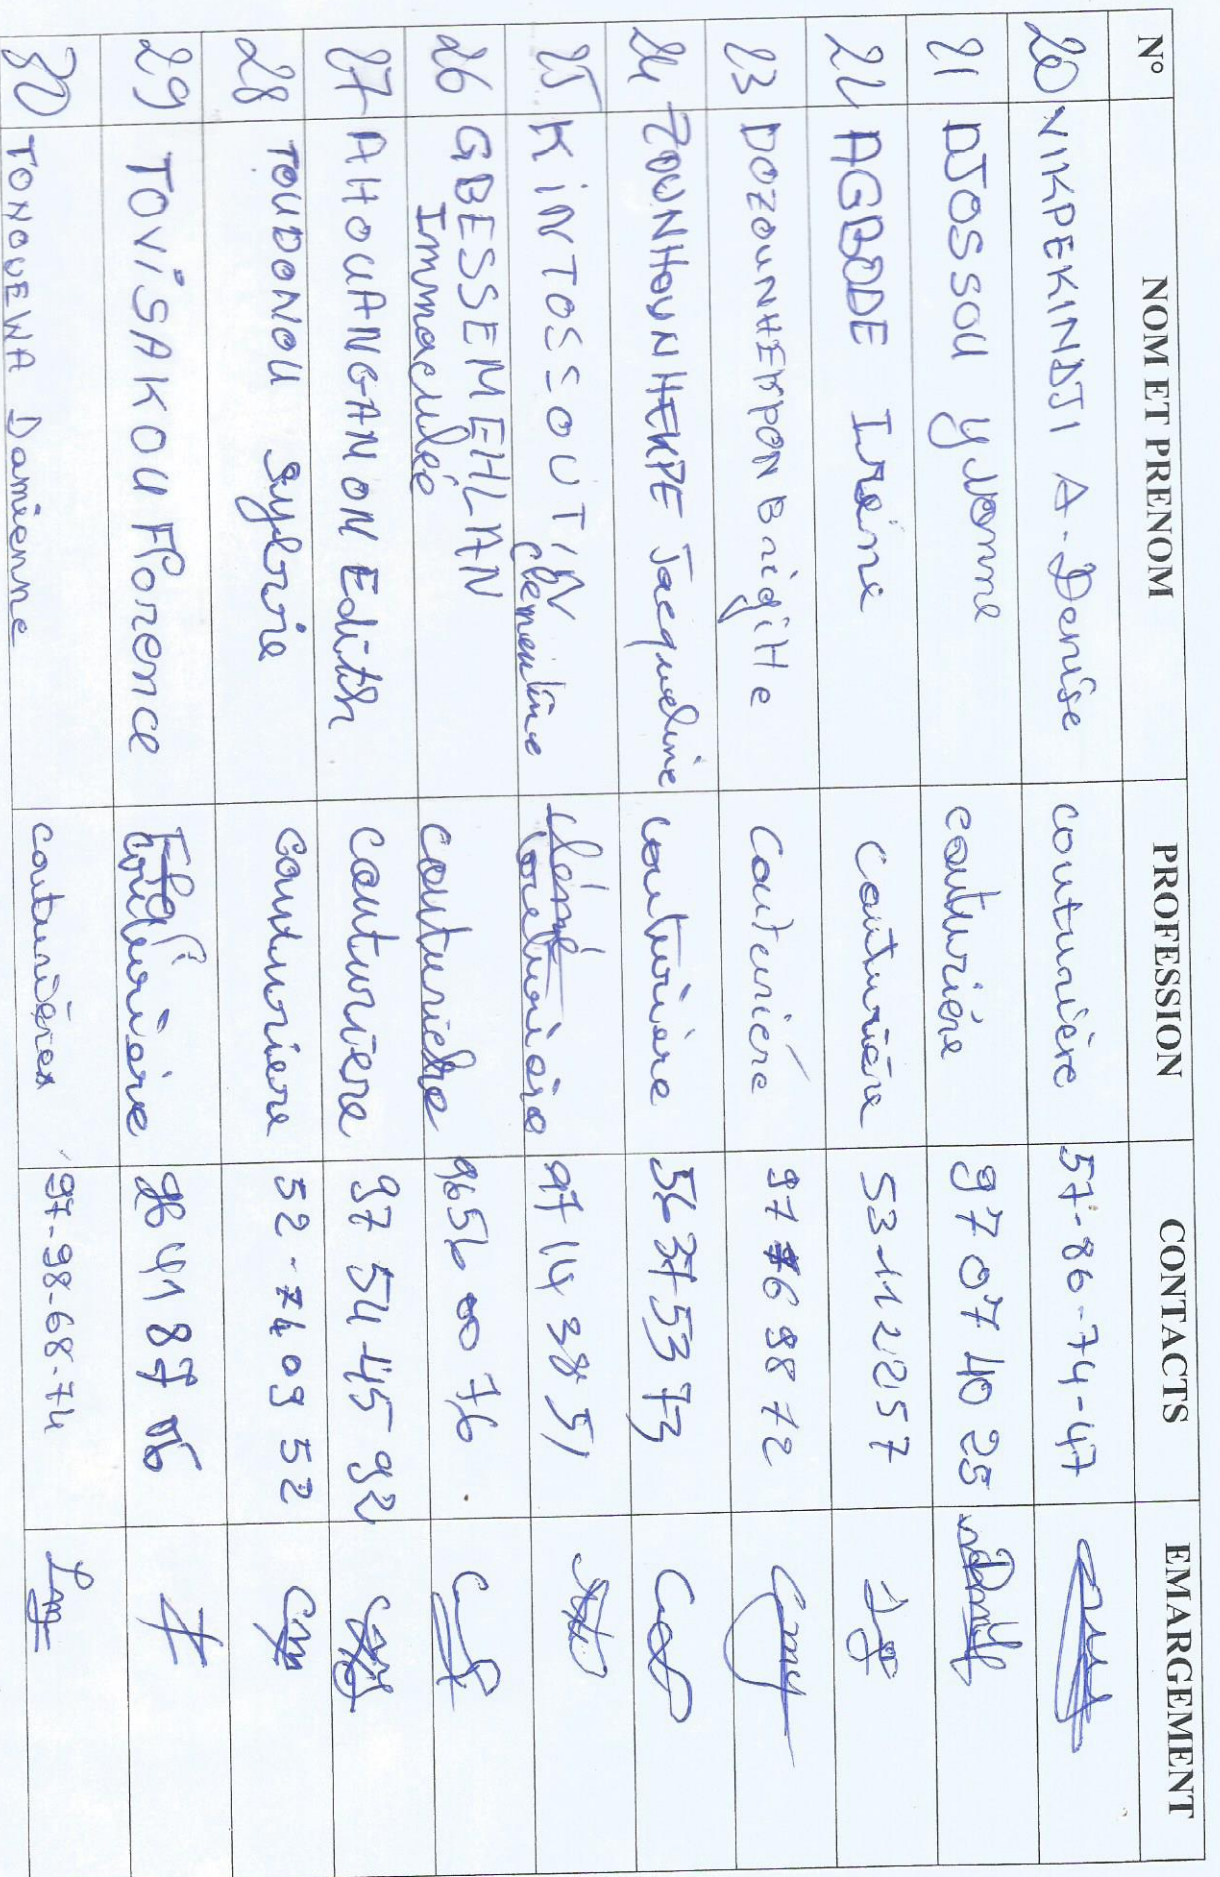 N° NOM ET PRENOM PROFESSION CONTACTS EMARGEMENT
20 VIKPEKINDJI A. Denise couturière 57-86-74-47
21 DJOSSOU Yvonne couturière 97 07 40 25
22 AGBODE Irène couturière 53 11 22 57
23 DOZOUNHEKPON Brigitte Couturière 97 76 98 72
24 ZOUNHOUNHEKPE Jacqueline couturière 56 37 53 73
25 KINTOSSOUTIN Clementine couturière 97 14 38 51
26 GBESSEMEHLAN Immaculée couturière 96 56 00 76
27 AHOUANGANON Edith couturière 97 54 45 92
28 TOUDONOU Sylvie couturiere 52-74 09 52
29 TOVISAKOU Florence couturière 96 41 87 06
30 TONOUEWA Damienne couturière 97-98-68-74